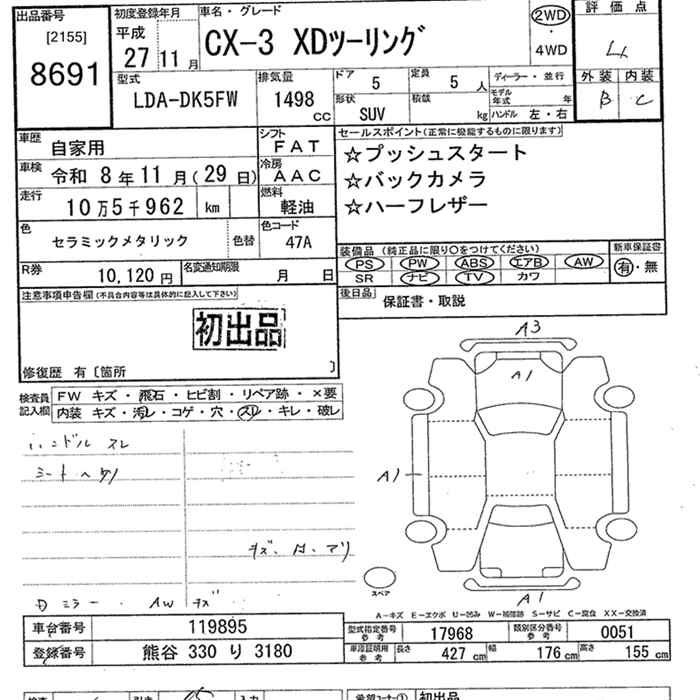 出品番号
[2155]
8691
初度登録年月
平成
27 11 月
車名・グレード
CX-3 XDツーリング
2WD
・
4WD
評価点
4
外装 内装
B C
型式
LDA-DK5FW
排気量
1498 CC
ドア 5
定員 5 人
ディーラー・並行
モデル年式 年
形状 SUV
積載 kg
ハンドル 左・右
車歴 自家用
シフト FAT
車検 令和 8 年 11 月 ( 29 日)
冷房 AAC
走行 10万5千962 km
燃料 軽油
色 セラミックメタリック 色替
色コード 47A
R券 10,120 円
名変通知期限 月 日
セールスポイント(正常に機能するものに限ります)
☆プッシュスタート
☆バックカメラ
☆ハーフレザー
装備品 (純正品に限り○をつけてください)
PS PW ABS エアB AW
SR ナビ TV カワ
新車保証書
有・無
後日品 保証書・取説
注意事項申告欄(不具合内容等は具体的に記入して下さい)
初出品
修復歴 有〔箇所 〕
検査員記入欄
FW キズ・飛石・ヒビ割・リペア跡・×要
内装 キズ・汚レ・コゲ・穴・スレ・キレ・破レ
ハンドル スレ
シート
ミラー AW キズ
A3
A1
A1
A1
スペア
A-キズ E-エクボ U-凹み W-補修跡 S-サビ C-腐食 XX-交換済
車台番号 119895
型式指定番号 参考 17968
類別区分番号 参考 0051
登録番号 熊谷 330 り 3180
車庫証明用 参考 長さ 427 cm 幅 176 cm 高さ 155 cm
希望コーナー① 初出品